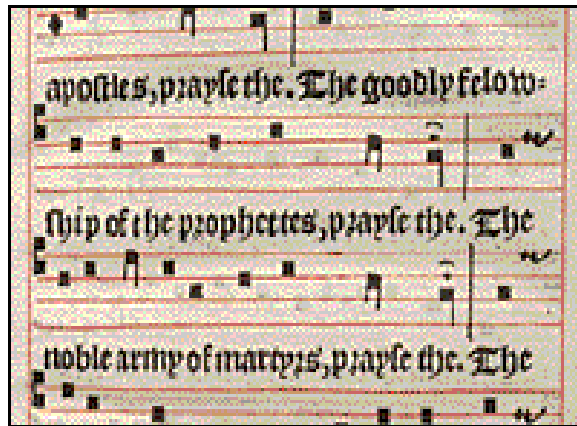 apostles, prayse the. The goodly felow=
ship of the prophettes, prayse the. The
noble army of martyrs, prayse the. The